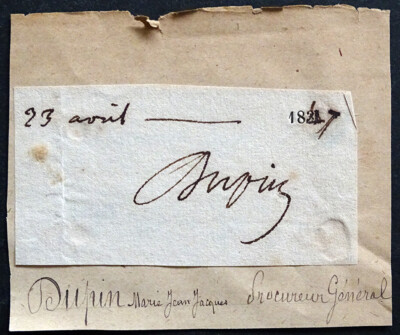 23 avril — 1847
Dupin
Dupin Marie Jean Jacques Procureur Général